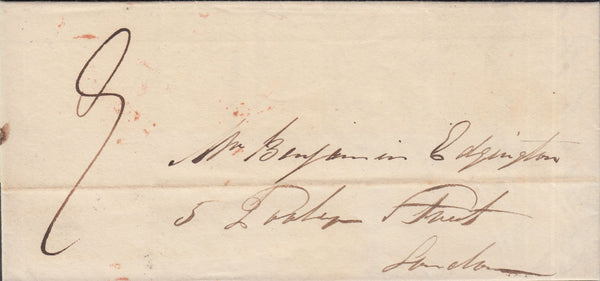 Mr Benjamin Edgington
5 Tooley Street
London